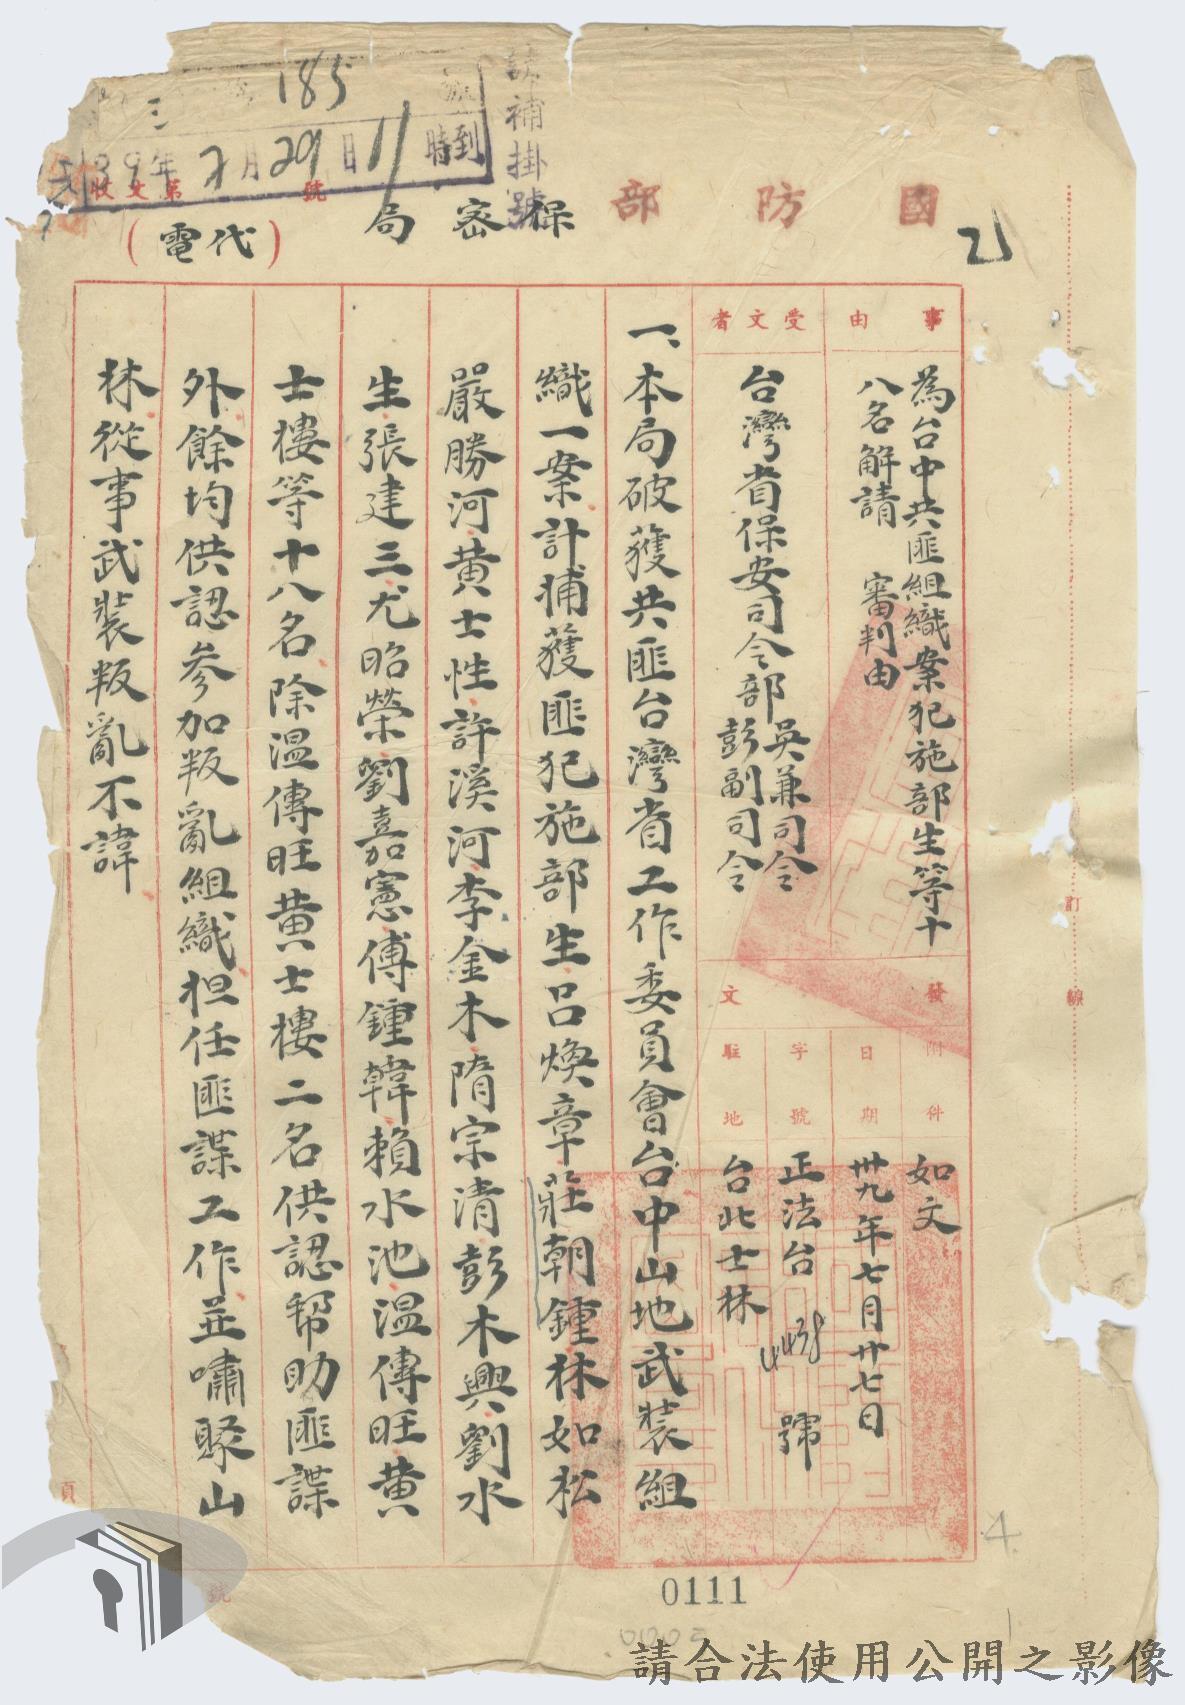 185
39年7月29日11時到
收文第 號
請補掛號
國防部
保密局
(代電)
事由
為台中共匪組織案犯施部生等十
八名解請 審判由
受文者
台灣省保安司令部吳兼司令
彭副司令
發文
附件
如文
日期
卅九年七月廿七日
字號
正法台 號
駐地
台北士林
一、本局破獲共匪台灣省工作委員會台中山地武裝組
織一案計捕獲匪犯施部生呂煥章莊朝鍾林如松
嚴勝河黃士性許溪河李金木隋宗清彭木興劉水
生張建三尤昭榮劉嘉憲傅鍾韓賴水池温傳旺黃
士樓等十八名除温傳旺黃士樓二名供認帮助匪諜
外餘均供認參加叛亂組織担任匪諜工作並嘯聚山
林從事武裝叛亂不諱
訂
線
頁
號
4
0111
請合法使用公開之影像